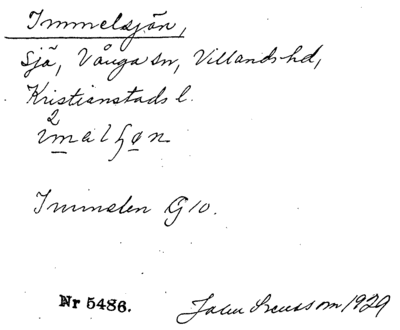 Immelsjön,
Sjö, Vånga sn, Villands hd,
Kristianstads l.
2
Immeln G10.
Nr 5486.
John Svensson 1929